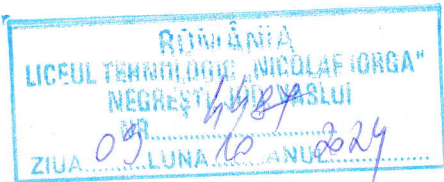 ROMÂNIA
LICEUL TEHNOLOGIC "NICOLAE IORGA"
NEGREȘTI, JUD. VASLUI
NR. 4487
ZIUA 09 LUNA 10 ANUL 2024